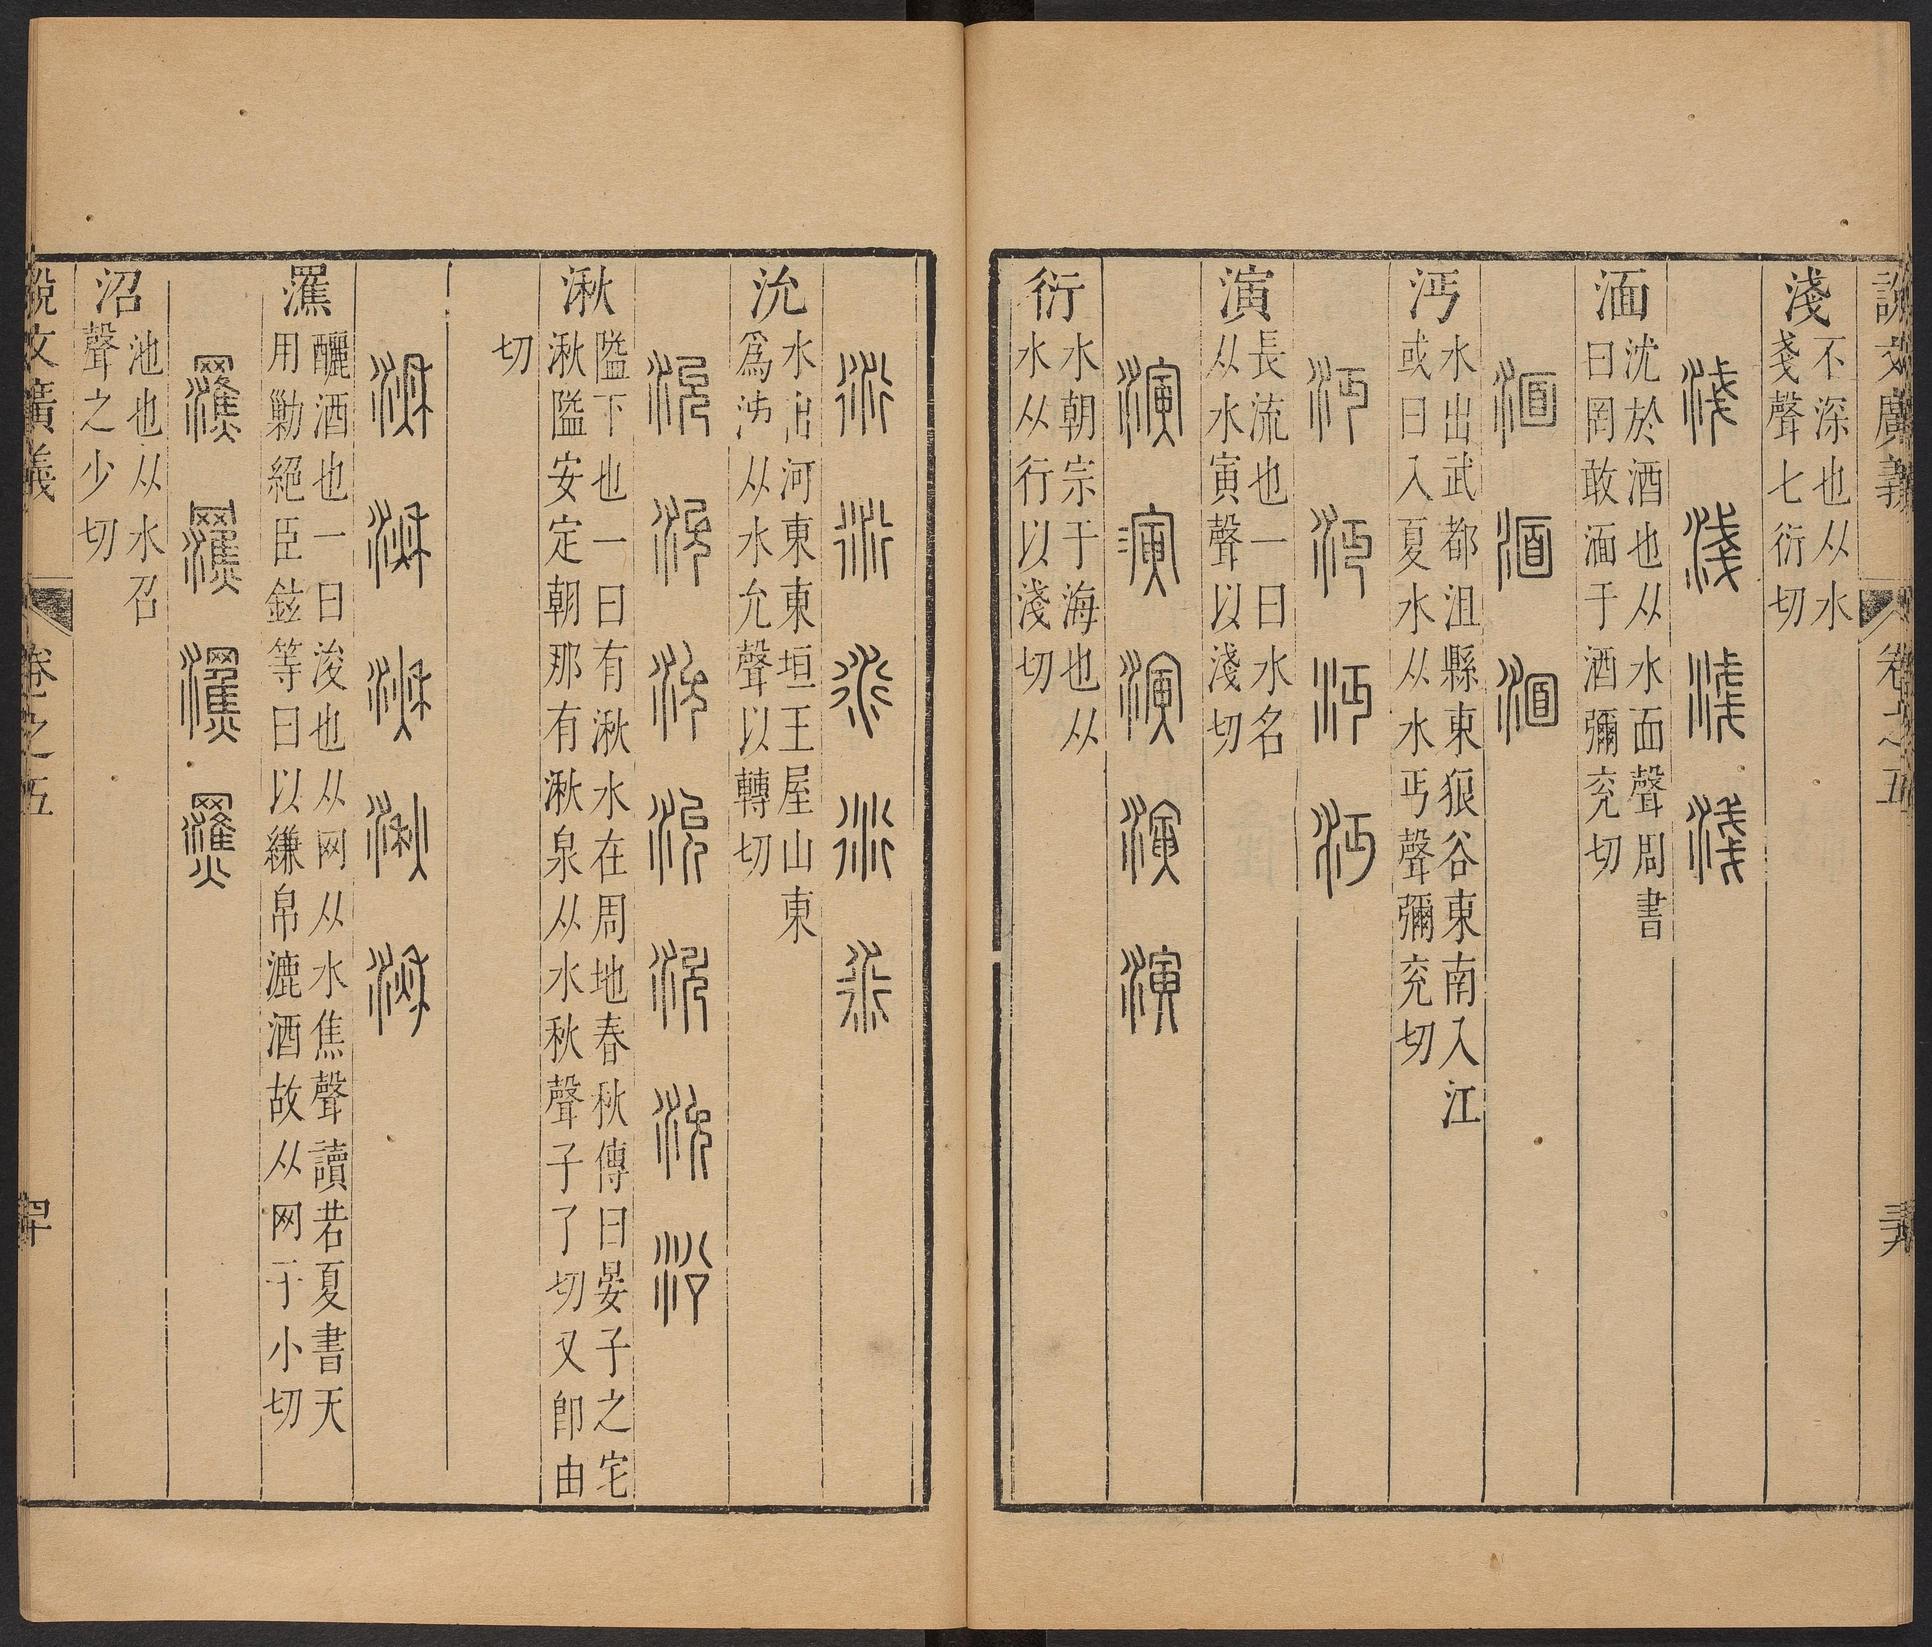 說文廣義 卷之五 五九
淺 不深也从水
戔聲七衍切
淺 淺 淺 淺
湎 沈於酒也从水面聲周書
曰罔敢湎于酒彌兖切
湎 湎 湎
沔 水出武都沮縣東狼谷東南入江
或曰入夏水从水丏聲彌兖切
沔 沔 沔 沔
演 長流也一曰水名
从水寅聲以淺切
演 演 演 演 演
衍 水朝宗于海也从
水从行以淺切
衍 衍 衍 衍 衍
沇 水出河東東垣王屋山東
爲沛从水允聲以轉切
沇 沇 沇 沇 沇 沇 沿
湫 隘下也一曰有湫水在周地春秋傳曰晏子之宅
湫隘安定朝那有湫泉从水秋聲子了切又卽由
切
湫 湫 湫 湫 湫
釃酒也一曰浚也从网从水焦聲讀若夏書天
用勦絕臣鉉等曰以縑帛漉酒故从网子小切
沼 池也从水召
聲之少切
說文廣義 卷之五